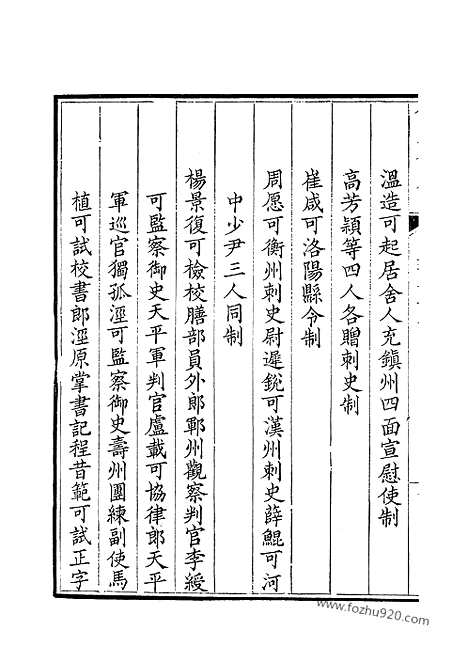 溫造可起居舍人充鎮州四面宣慰使制
高芳穎等四人各贈刺史制
崔咸可洛陽縣令制
周愿可衡州刺史尉遲銳可漢州刺史薛鯤可河
中少尹三人同制
楊景復可檢校膳部員外郎鄆州觀察判官李綬
可監察御史天平軍判官盧載可協律郎天平
軍巡官獨孤涇可監察御史壽州團練副使馬
植可試校書郎涇原掌書記程昔範可試正字
www.fozhu920.com